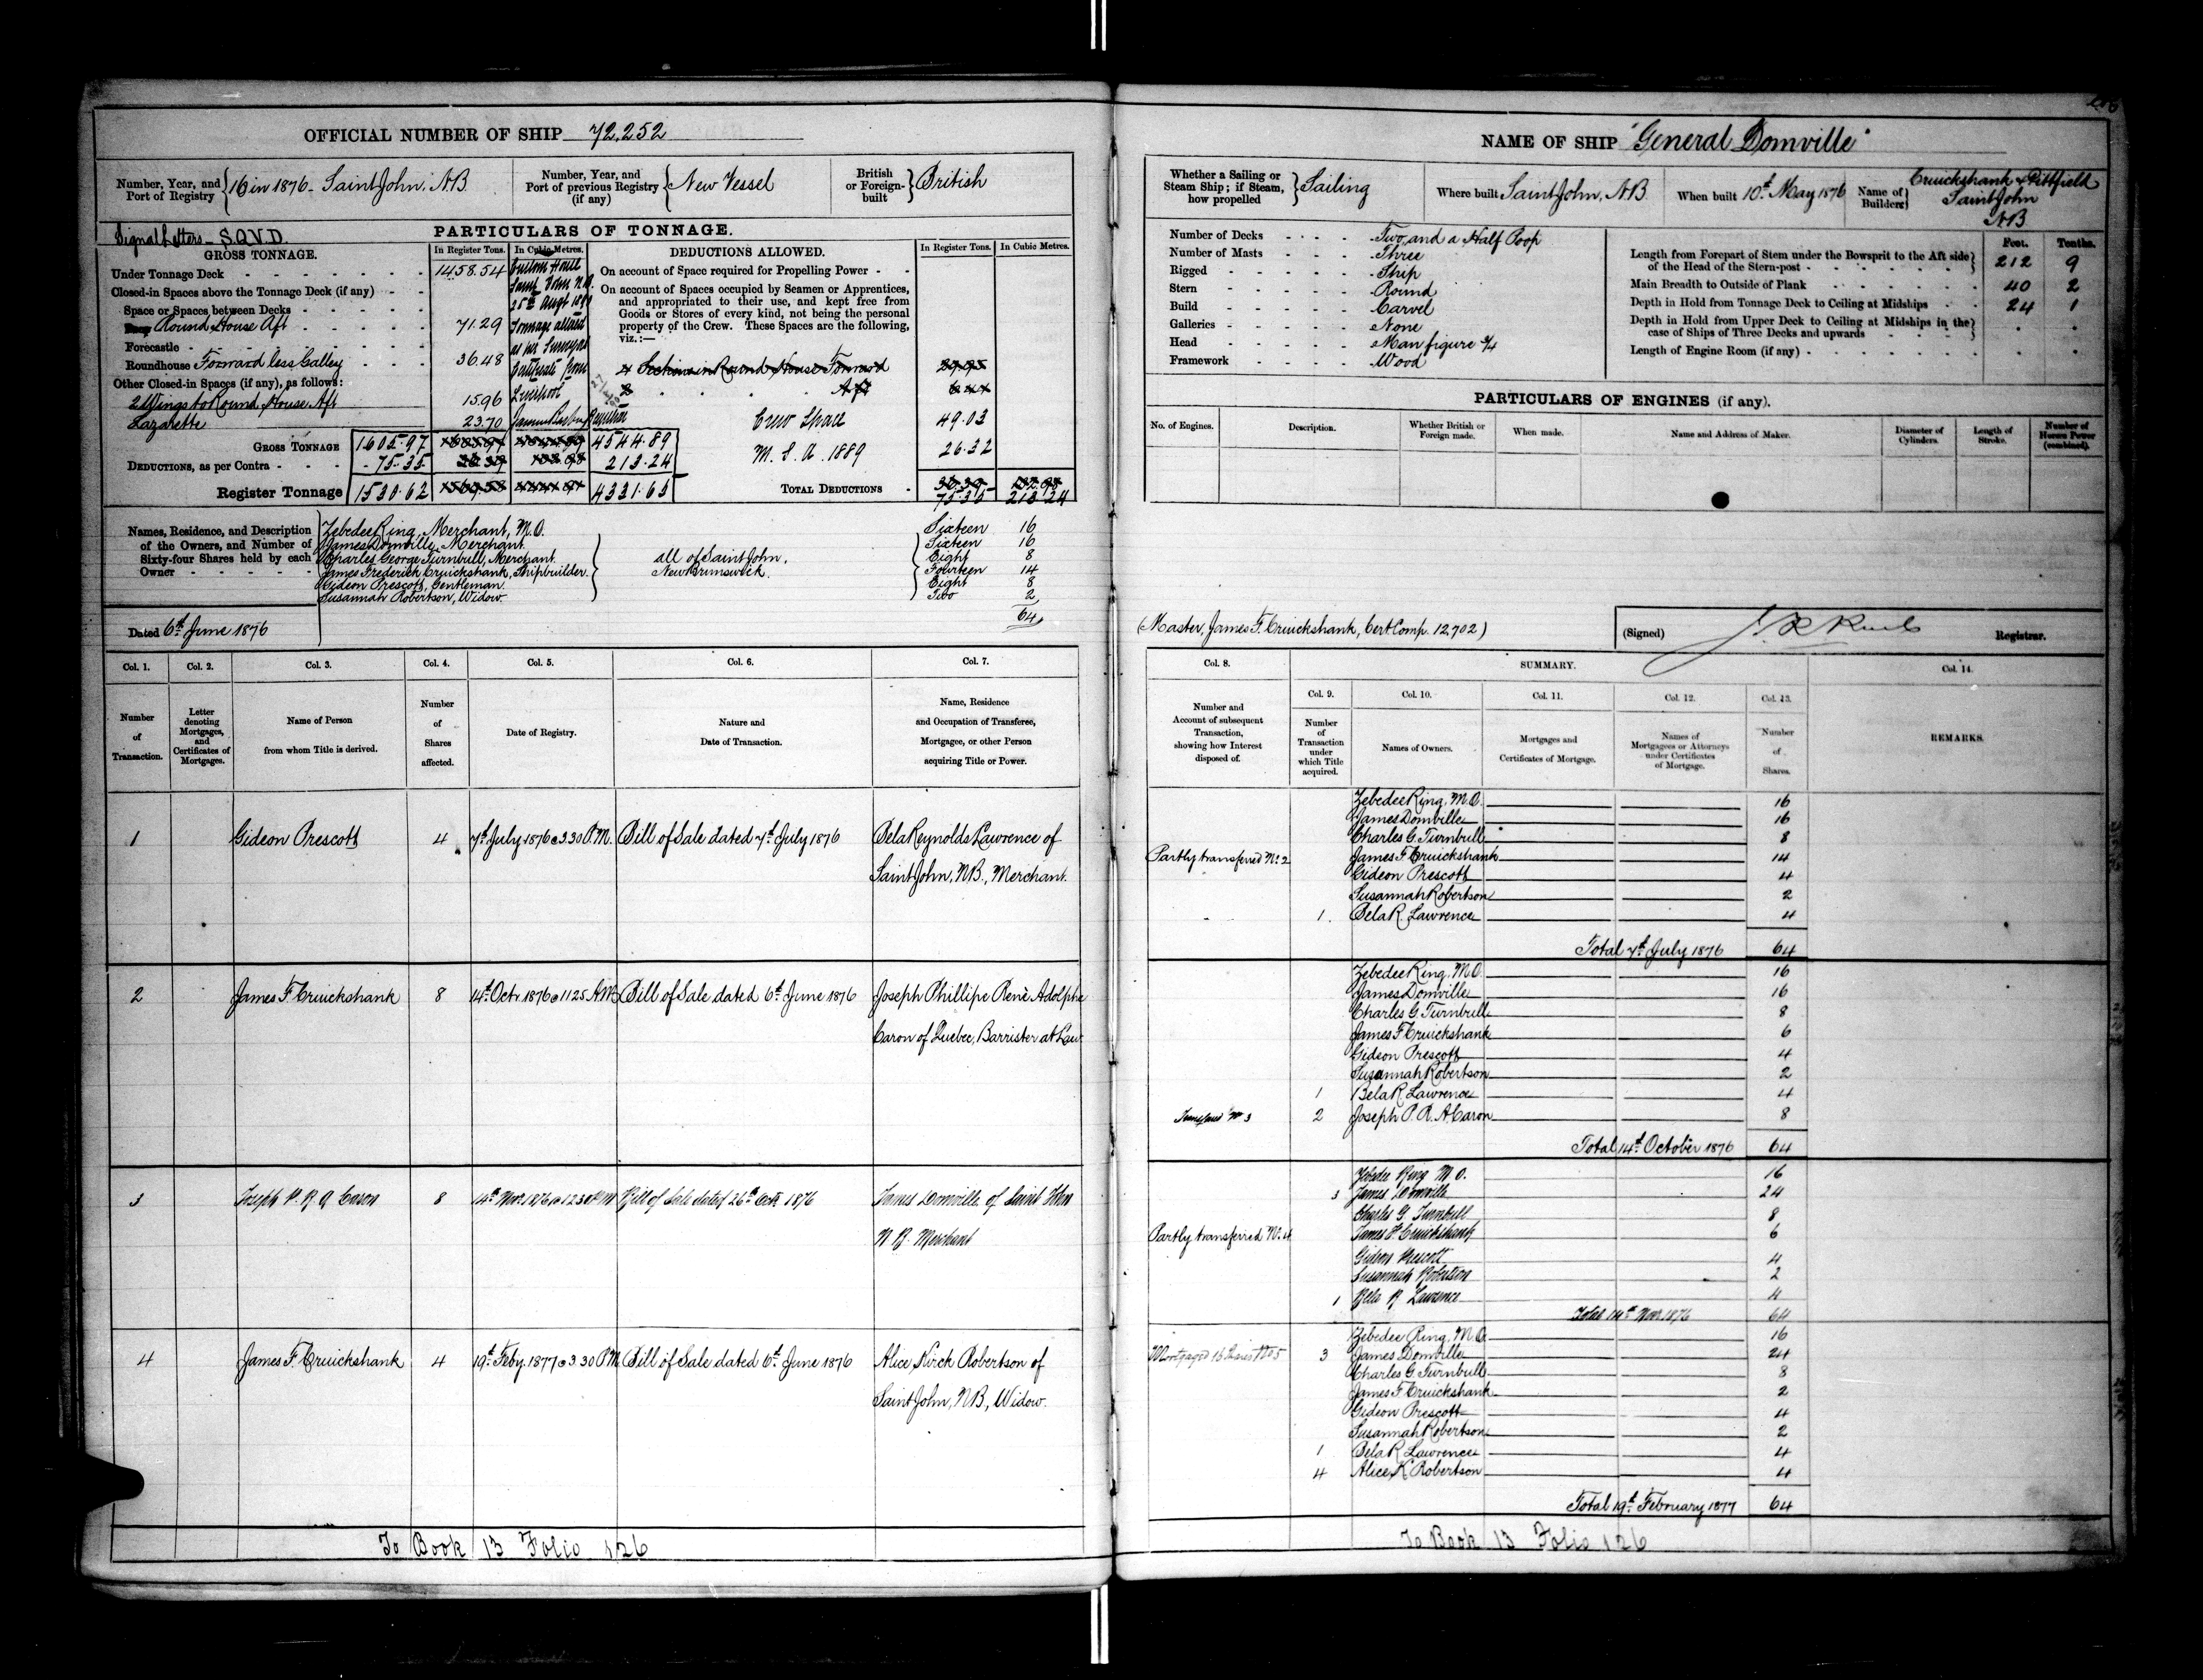 OFFICIAL NUMBER OF SHIP 72,252
Number, Year, and Port of Registry 16 in 1876 - Saint John, N.B.
Number, Year, and Port of previous Registry (if any) New Vessel
British or Foreign-built British
Signal Letters - S.Q.V.D.
PARTICULARS OF TONNAGE.
GROSS TONNAGE.
In Register Tons. In Cubic Metres.
Under Tonnage Deck 1458.54
Closed-in Spaces above the Tonnage Deck (if any)
Space or Spaces between Decks
Round House Aft 71.29
Forecastle
Roundhouse Forward less Galley 36.48
Other Closed-in Spaces (if any), as follows:
2 Wings to Round House Aft 15.96
Lazarette 23.70
Custom House
Saint John N.B.
25th Augt
Tonnage altered
as per Surveyors
Certificate from
Liverpool
GROSS TONNAGE 1605.97 4544.89
DEDUCTIONS, as per Contra 75.35 213.24
Register Tonnage 1530.62 4331.65
DEDUCTIONS ALLOWED. In Register Tons. In Cubic Metres.
On account of Space required for Propelling Power
On account of Spaces occupied by Seamen or Apprentices,
and appropriated to their use, and kept free from
Goods or Stores of every kind, not being the personal
property of the Crew. These Spaces are the following,
viz.:—
4 Sections in Round House Forward 29.95
Aft 6.44
Crew Space 49.03
M.S.A. 1889 26.32
TOTAL DEDUCTIONS 36.39
75.35 213.24
Names, Residence, and Description of the Owners, and Number of Sixty-four Shares held by each Owner
Zebedee Ring, Merchant, M.O. Sixteen 16
James Domville, Merchant Sixteen 16
Charles George Turnbull, Merchant. Eight 8
James Frederick Cruickshank, Shipbuilder. Fourteen 14
Gideon Prescott, Gentleman Eight 8
Susannah Robertson, Widow Two 2
all of Saint John,
New Brunswick.
64
Dated 6th June 1876
Col. 1. Col. 2. Col. 3. Col. 4. Col. 5. Col. 6. Col. 7.
Number of Transaction.
Letter denoting Mortgages, and Certificates of Mortgages.
Name of Person from whom Title is derived.
Number of Shares affected.
Date of Registry.
Nature and Date of Transaction.
Name, Residence and Occupation of Transferee, Mortgagee, or other Person acquiring Title or Power.
1 Gideon Prescott 4 7th July 1876 @ 3.30 P.M. Bill of Sale dated 7th July 1876 Bela Reynolds Lawrence of
Saint John, N.B., Merchant.
2 James F. Cruickshank 8 14th Octr 1876 @ 11.25 A.M. Bill of Sale dated 6th June 1876 Joseph Phillipe Renè Adolphe
Caron of Quebec, Barrister at Law
3 Joseph P. R. A Caron 8 14th Novr 1876 @ 12.30 P.M Bill of Sale dated 26th Octr 1876 James Domville of Saint John
N B. Merchant
4 James F. Cruickshank 4 19th Feby. 1877 @ 3.30 P.M. Bill of Sale dated 6th June 1876 Alice Kirck Robertson of
Saint John, N.B., Widow.
To Book 13 Folio 126
NAME OF SHIP "General Domville"
Whether a Sailing or Steam Ship; if Steam, how propelled Sailing
Where built Saint John, N.B.
When built 10th May 1876
Name of Builders Cruickshank & Pittfield
Saint John
N.B
Number of Decks Two and a Half Poop
Number of Masts Three
Rigged Ship
Stern Round
Build Carvel
Galleries None
Head Man figure 3/4
Framework Wood
Feet. Tenths.
Length from Forepart of Stem under the Bowsprit to the Aft side of the Head of the Stern-post 212 9
Main Breadth to Outside of Plank 40 2
Depth in Hold from Tonnage Deck to Ceiling at Midships 24 1
Depth in Hold from Upper Deck to Ceiling at Midships in the case of Ships of Three Decks and upwards
Length of Engine Room (if any)
PARTICULARS OF ENGINES (if any).
No. of Engines. Description. Whether British or Foreign made. When made. Name and Address of Maker. Diameter of Cylinders. Length of Stroke. Number of Horses Power (combined).
(Master, James F. Cruickshank, Cert Comp. 12,702)
(Signed) Registrar.
Col. 8. SUMMARY. Col. 14.
Col. 9. Col. 10. Col. 11. Col. 12. Col. 13.
Number and Account of subsequent Transaction, showing how Interest disposed of.
Number of Transaction under which Title acquired.
Names of Owners.
Mortgages and Certificates of Mortgage.
Names of Mortgagees or Attorneys under Certificates of Mortgage.
Number of Shares.
REMARKS.
Zebedee Ring, M.O. 16
James Domville 16
Charles G. Turnbull 8
Partly transferred No. 2 James F Cruickshank 14
Gideon Prescott 4
Susannah Robertson 2
1. Bela R. Lawrence 4
Total 7th July 1876 64
Zebedee Ring, M.O. 16
James Domville 16
Charles G. Turnbull 8
James F Cruickshank 6
Gideon Prescott 4
Susannah Robertson 2
1 Bela R. Lawrence 4
Transferred No 3 2 Joseph P. R. A Caron 8
Total 14th October 1876 64
Zebedee Ring M O. 16
3 James Domville 24
Charles G Turnbull 8
Partly transferred No. 4 James F Cruickshank 6
Gideon Prescott 4
Susannah Robertson 2
1 Bela R Lawrence 4
Total 14th Novr 1876 64
Zebedee Ring, M.O. 16
Mortgaged 16 Shares No 5 3 James Domville 24
Charles G. Turnbull 8
James F Cruickshank 2
Gideon Prescott 4
Susannah Robertson 2
1 Bela R. Lawrence 4
4 Alice K Robertson 4
Total 19th February 1877 64
To Book 13 Folio 126